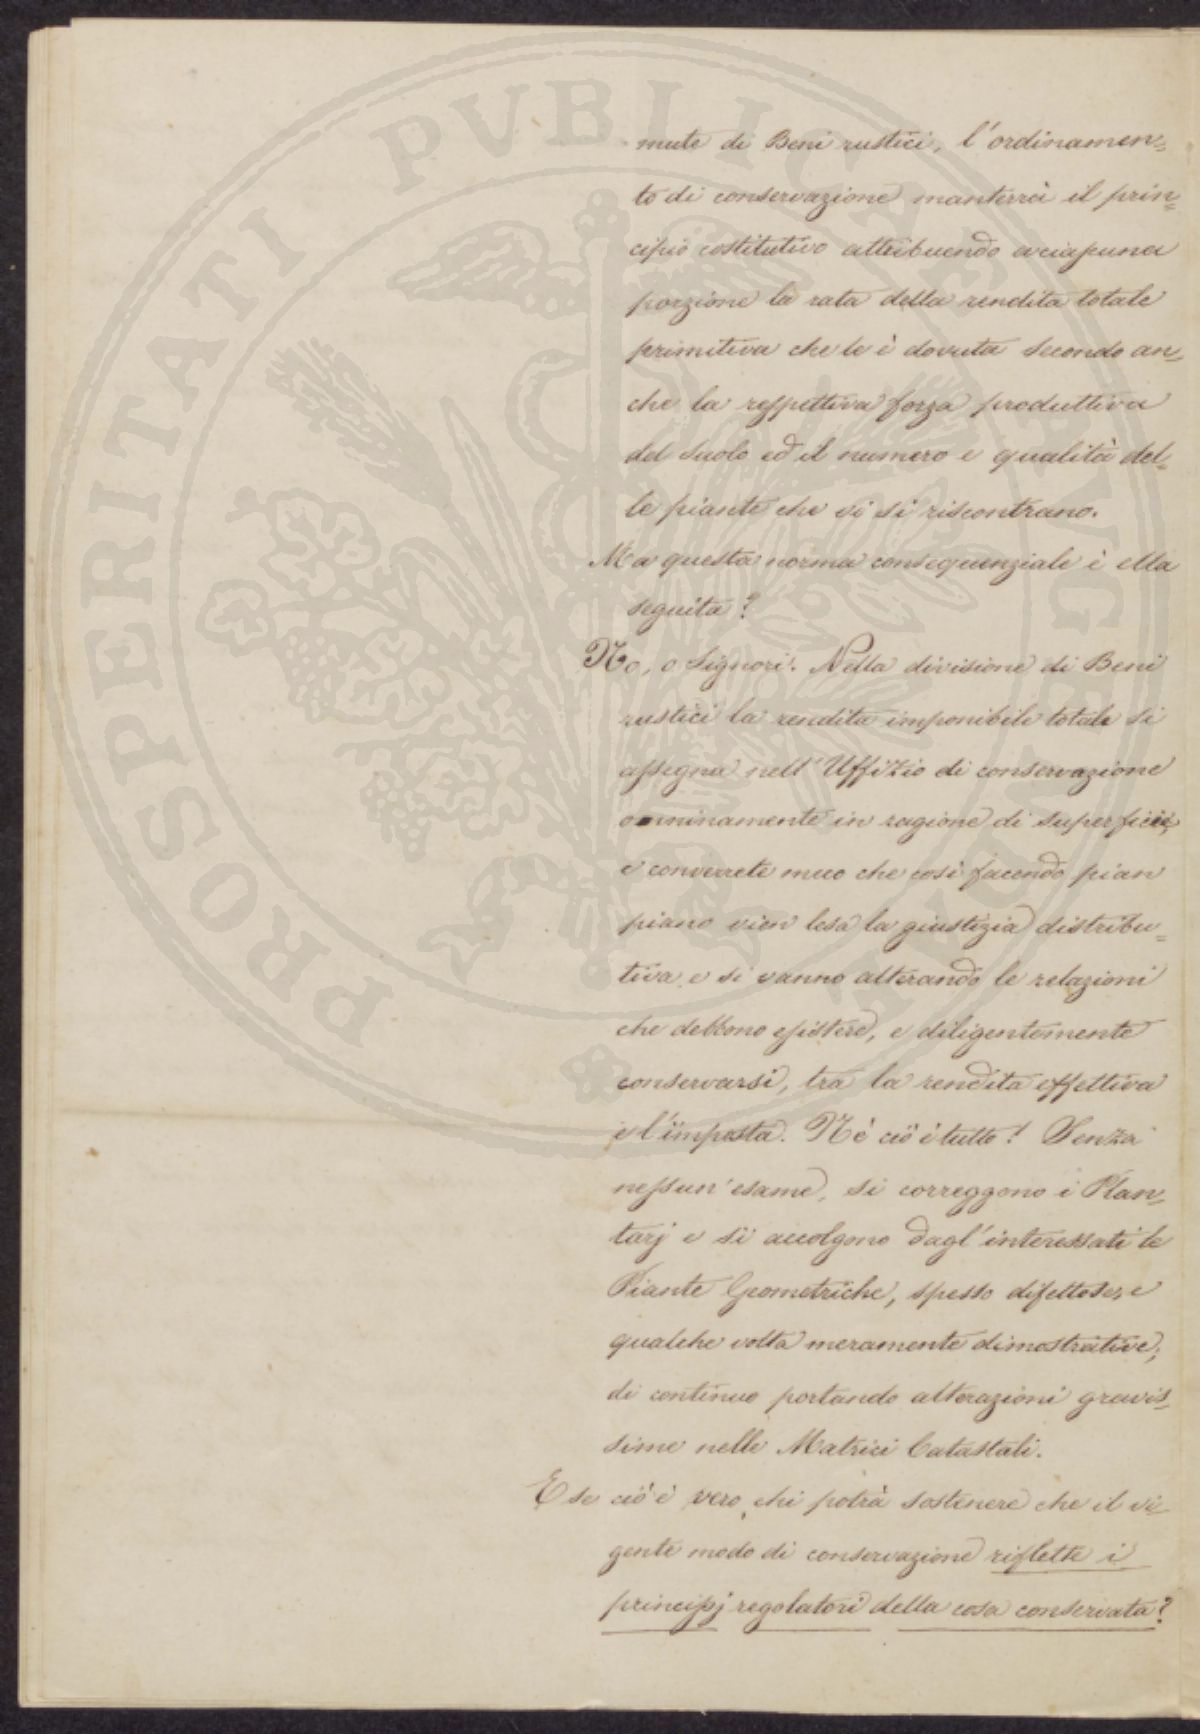 mute di Beni rustici, l'ordinamen=
to di conservazione manterrà il prin=
cipio costitutivo attribuendo a ciascuna
porzione la rata della rendita totale
primitiva che le è dovuta secondo an=
che la rispettiva forza produttiva
del suolo ed il numero e qualità del=
le piante che vi si riscontrano.
Ma questa norma consequenziale è ella
seguita?
No, o Signori. Nella divisione di Beni
rustici la rendita imponibile totale si
assegna nell'Uffizio di conservazione
onninamente in ragione di superficie,
e converrete meco che così facendo pian
piano vien lesa la giustizia distribu=
tiva e si vanno alterando le relazioni
che debbono esistere, e diligentemente
conservarsi, tra la rendita effettiva
e l'imposta. Nè ciò è tutto! Senza
nessun'esame, si correggono i Plan=
tarj e si accolgono dagl'interessati le
Piante Geometriche, spesso difettose, e
qualche volta meramente dimostrative;
di continuo portando alterazioni gravis=
sime nelle Matrici Catastali.
E se ciò è vero, chi potrà sostenere che il vi=
gente modo di conservazione riflette i
principj regolatori della cosa conservata?
PROSPERITATI PVBLICAE